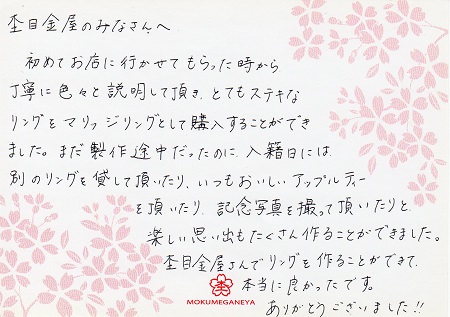 杢目金屋のみなさんへ
初めてお店に行かせてもらった時から
丁寧に色々と説明して頂き、とてもステキな
リングをマリッジリングとして購入することができ
ました。まだ製作途中だったのに、入籍日には
別のリングを貸して頂いたり、いつもおいしいアップルティー
を頂いたり、記念写真を撮って頂いたりと
楽しい思い出もたくさん作ることができました。
杢目金屋さんでリングを作ることができて、
本当に良かったです。
ありがとうございました!!
MOKUMEGANEYA